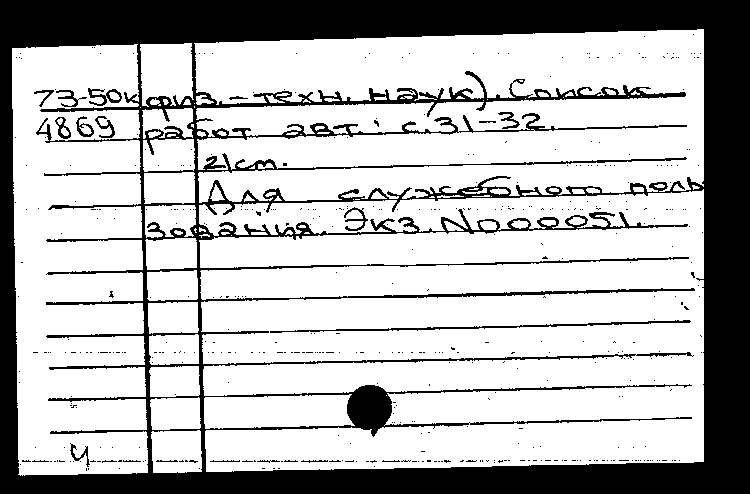 73-50к физ.-техн. наук). Список
4869 работ авт.: с.31-32.
21см.
Для служебного поль
зования. Экз. N000051.
Ч